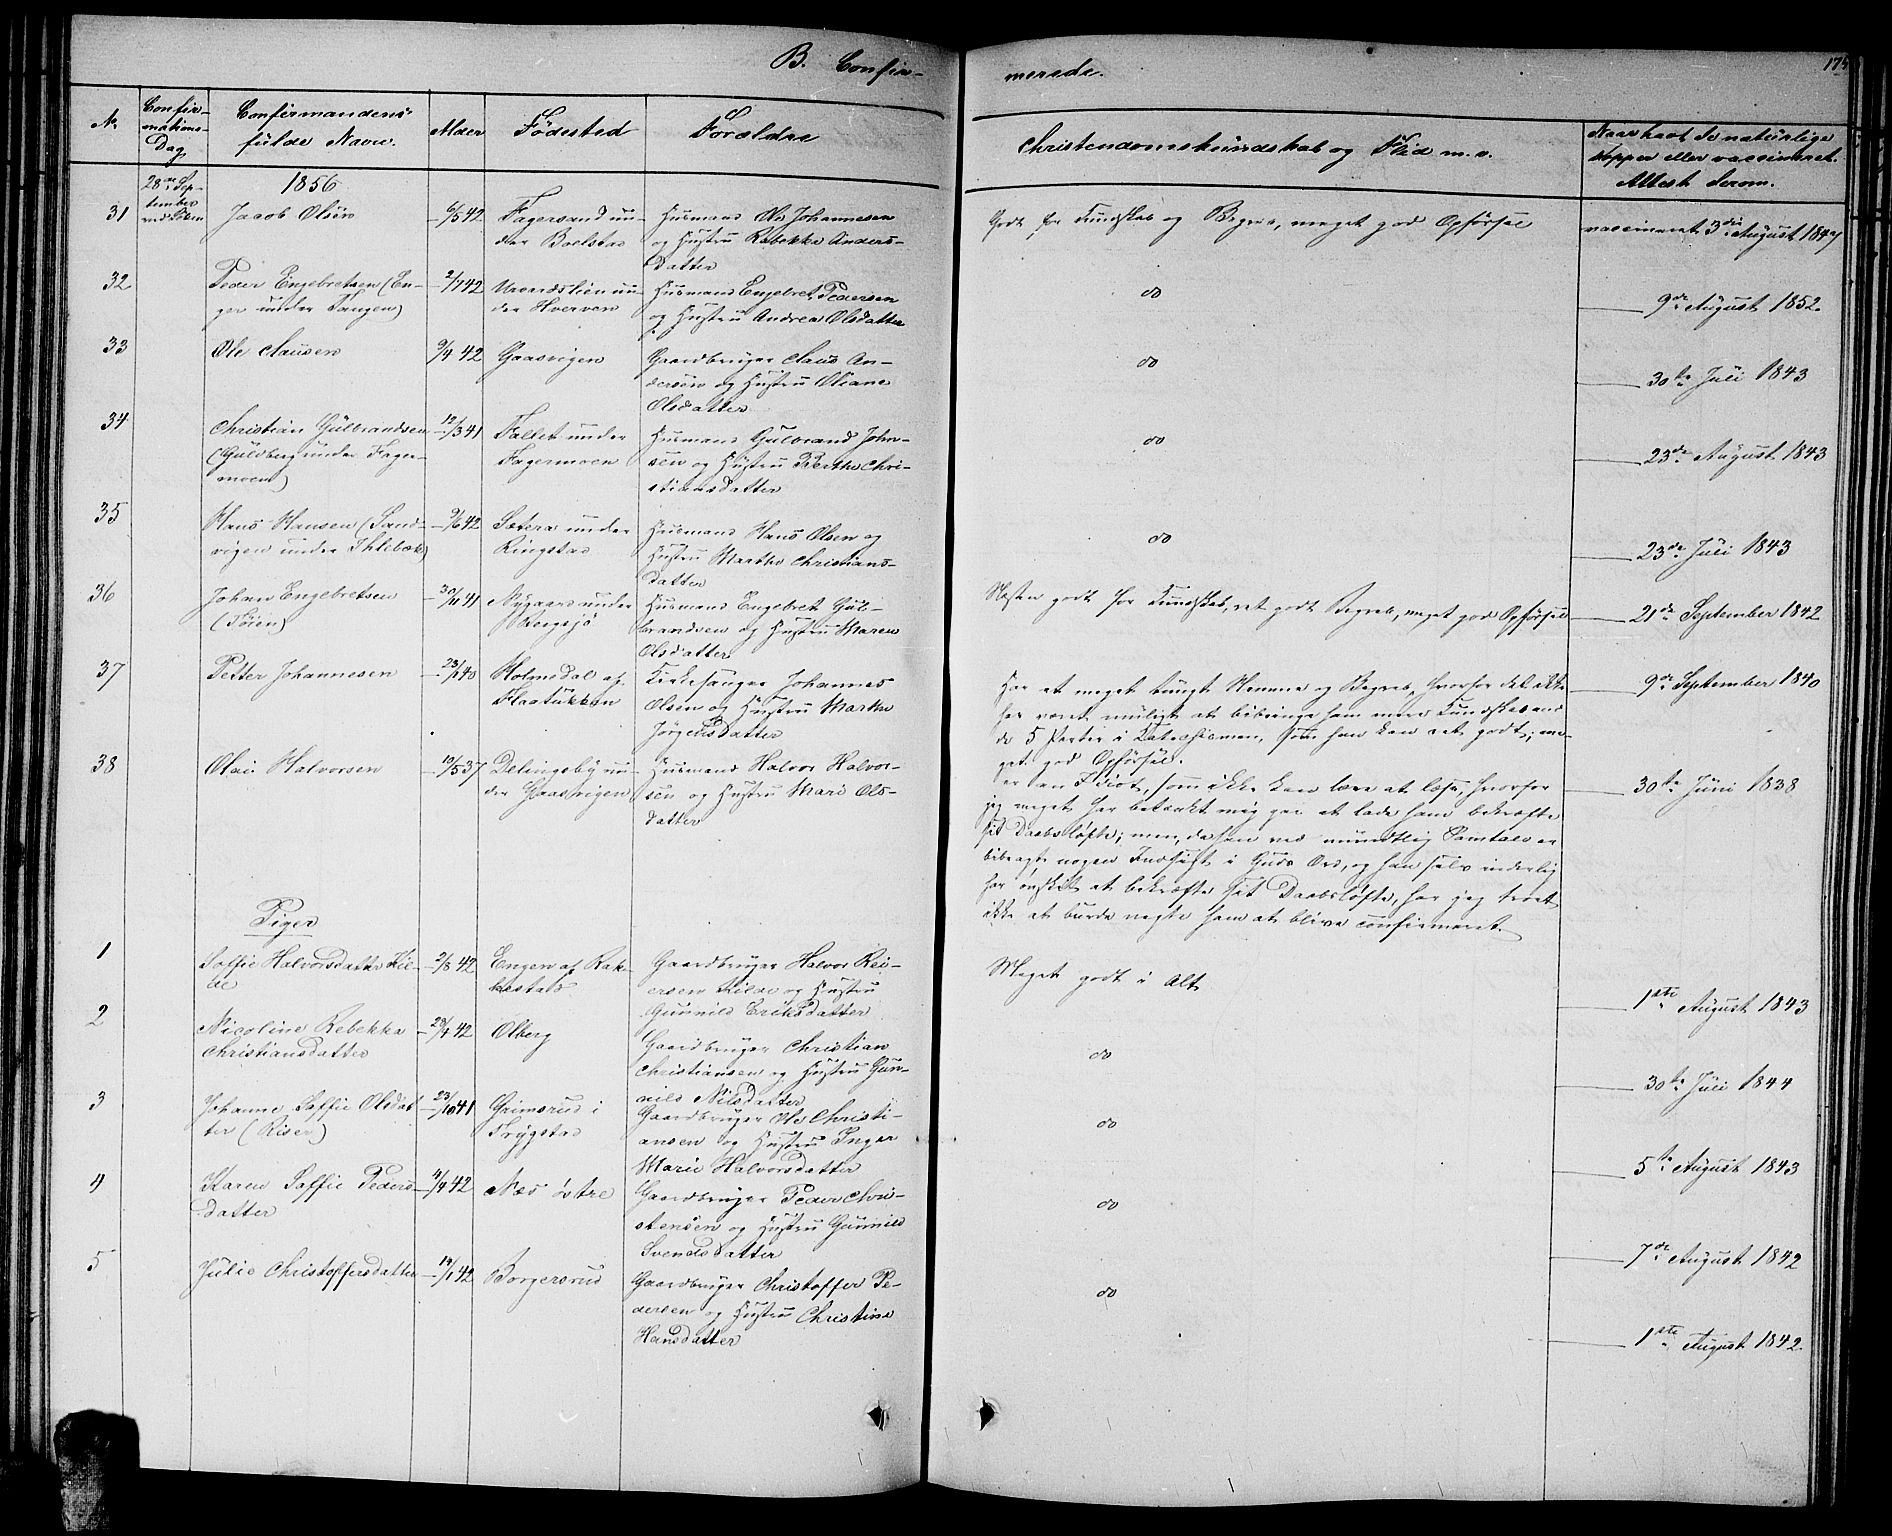 B. Confir-
merede.
No
Confir-
mations-
Dag
Confirmandens
fulde Navn.
Alder
Fødested
Forældre
Christendomskundskab og Flid m.v.
Naar havt de naturlige
Kopper eller vaccineret.
Attest derom.
28de Sep-
tember
1856
31 Jacob Olsen 6/5 42 Fagersand un-
der Boelstad
Husmand Ole Johannesen
og Hustru Rebekka Anders-
datter
Godt for Kundskab og Begreb, meget god Opførsel
vaccineret 3die August 184
32 Peder Engebretsen (En-
ger under Tangen)
2/7 42
der Hverven
Husmand Engebret Pedersen
og Hustru Andrea Olsdatter
do
9de August 1852.
33 Ole Clausen 9/4 42 Gaasvigen
Gaardbruger Claus An-
dersen og Hustru Oliane
Olsdatter
do
30te Juli 1843
34 Christian Gulbrandsen
(Guldberg under Fager-
moen)
12/3 41 Fallet under
Fagermoen
Husmand Gulbrand John-
sen og Hustru Berthe Chri-
stiansdatter
do
23de August 1843
35 Hans Hansen (Sand-
vigen under Ihlebæk)
9/6 42 Sætera under
Ringstad
Husmand Hans Olsen og
Hustru Marthe Christians-
datter
do
23de Juli 1843
36 Johan Engebretsen
(Toien)
30/11 41 Nygaard under
Bergsjø
Husmand Engebret Gul-
brandsen og Hustru Maren
Olsdatter
Næsten godt for Kundskab, ret godt Begreb, meget god Opførsel
21de September 1842
37 Petter Johannesen 23/1 40 Holmedal af
Flaatukken
Kirkesanger Johannes
Olsen og Hustru Marthe
Jørgensdatter
Har et meget tungt Nemme og Begreb, hvorfor det ikke
har været muligt at bibringe ham mere Kundskab end
de 5 Parter i Katechismen, som han kan ret godt; me-
get god Opførsel.
9de September 1840
38 Olai Halvorsen 10/5 37 Delingsby un-
der Gaasvigen
Husmand Halvor Halvor-
sen og Hustru Mari Ols-
datter
er en Idiot, som ikke kan lære at læse, hvorfor
jeg meget har betænkt mig paa at lade ham bekræfte
sit Daabsløfte; men, da han ved mundtlig Samtale er
bibragt nogen Indsigt i Guds Ord, og han selv inderlig
har ønsket at bekræfte sit Daabsløfte, har jeg troet
ikke at burde negte ham at blive confirmeret.
30te Juni 1838
Piger
1 Soffie Halvorsdatter Kil-
de
2/8 42 Engen af Rak-
kestads
Gaardbruger Halvor Rei-
ersen Kilde og Hustru
Gunnild Eriksdatter
Meget godt i Alt
1ste August 1843
2 Nicoline Rebekka
Christiansdatter
28/4 42 Olberg
Gaardbruger Christian
Christiansen og Hustru Gun-
nild Nilsdatter
do
30te Juli 1844
3 Johanne Soffie Olsdat-
ter (Riser)
23/10 41 Grimsrud i
Trygstad
Gaardbruger Ole Christi-
ansen og Hustru Inger
Marie Halvorsdatter
do
5te August 1843
4 Karen Soffie Peders-
datter
4/4 42 Næs østre
Gaardbruger Peder Chri-
stensen og Hustru Gunnild
Svendsdatter
do
7de August 1842
5 Julie Christoffersdatter 19/1 42 Borgersrud
Gaardbruger Christoffer Pe-
dersen og Hustru Christine
Hansdatter
do
1ste August 1842.